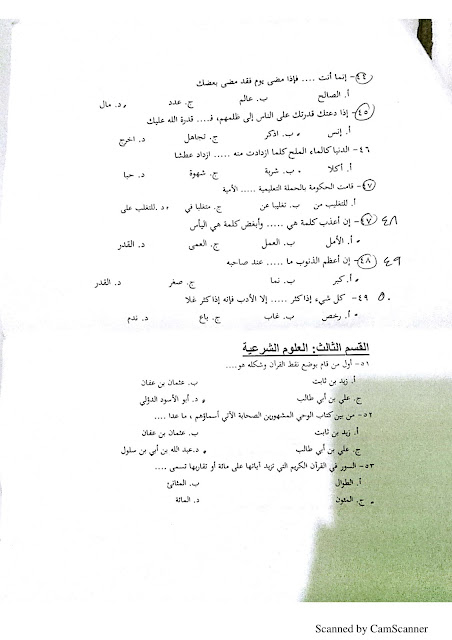 ٤٤- إنما أنت .... فإذا مضى يوم فقد مضى بعضك
أ. الصالح ب. عالم ج. عدد د. مال
٤٥- إذا دعتك قدرتك على الناس إلى ظلمهم، فـ.... قدرة الله عليك
أ. إنس ب. اذكر ج. تجاهل د. اخرج
٤٦- الدنيا كالماء الملح كلما ازدادت منه ..... ازداد عطشا
أ. أكلا ب. شربة ج. شهوة د. حبا
٤٧- قامت الحكومة بالحملة التعليمية ..... الأمية
أ. للتغليب من ب. تغليبا عن ج. متغلبا في د. للتغلب على
٤٨ ٤٧- إن أعذب كلمة هي ..... وأبغض كلمة هي اليأس
أ. الأمل ب. العمل ج. العمى د. القدر
٤٩ ٤٨- إن أعظم الذنوب ما ..... عند صاحبه
أ. كبر ب. نما ج. صغر د. القدر
٥٠ ٤٩- كل شيء إذا كثر ..... إلا الأدب فإنه إذا كثر غلا
أ. رخص ب. غاب ج. باع د. ندم
القسم الثالث: العلوم الشرعية
٥١- أول من قام بوضع نقط القرآن وشكله هو....
أ. زيد بن ثابت ب. عثمان بن عفان
ج. علي بن أبي طالب د. أبو الأسود الدؤلي
٥٢- من بين كتاب الوحي المشهورين الصحابة الآتي أسماؤهم ، ما عدا ....
أ. زيد بن ثابت ب. عثمان بن عفان
ج. علي بن أبي طالب د. عبد الله بن أبي بن سلول
٥٣- السور في القرآن الكريم التي تزيد آياتها على مائة أو تقاربها تسمى ....
أ. الطوال ب. المثاني
ج. المئون د. المائة
Scanned by CamScanner